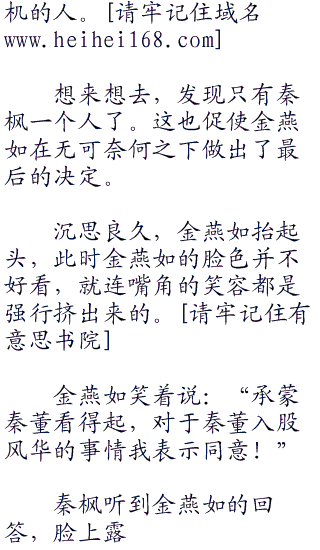 机的人。[请牢记住域名
www.heihei168.com]
想来想去，发现只有秦
枫一个人了。这也促使金燕
如在无可奈何之下做出了最
后的决定。
沉思良久，金燕如抬起
头，此时金燕如的脸色并不
好看，就连嘴角的笑容都是
强行挤出来的。[请牢记住有
意思书院]
金燕如笑着说：“承蒙
秦董看得起，对于秦董入股
风华的事情我表示同意！”
秦枫听到金燕如的回
答，脸上露